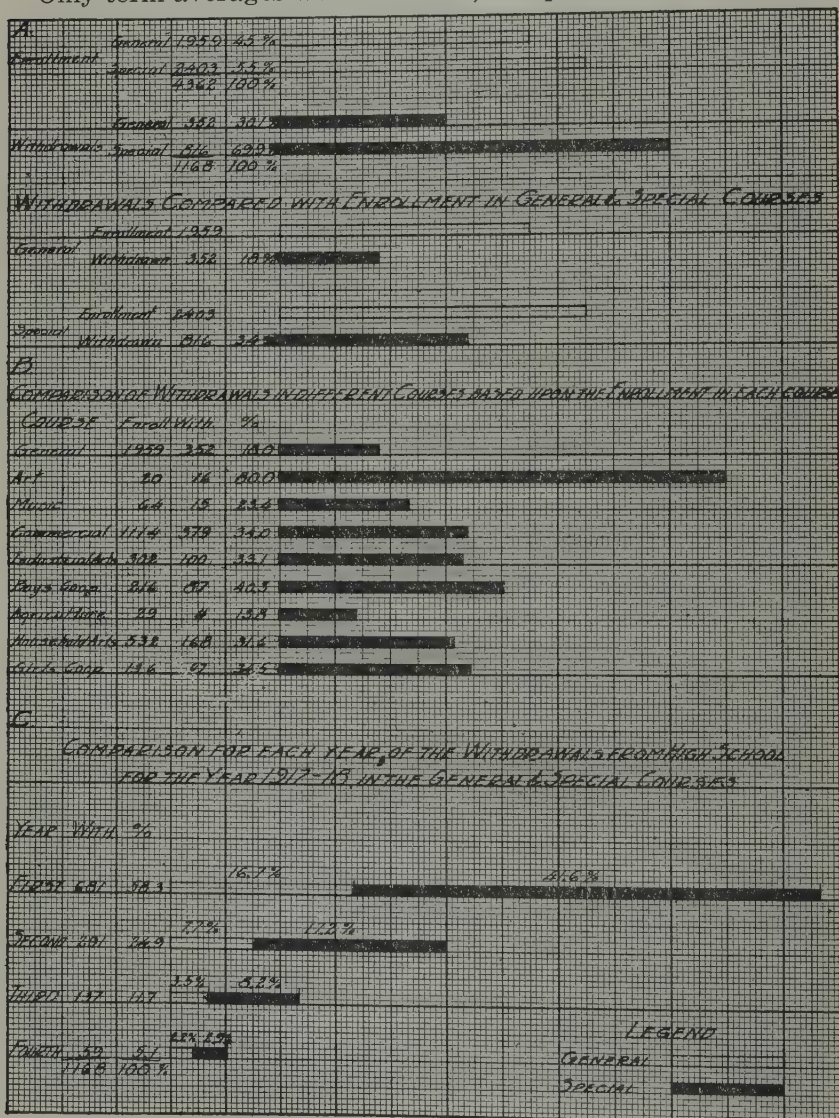 Only term averages
A.
General 1959 45 %
Enrollment
Special 2403 55 %
4362 100 %
General 352 30.1%
Withdrawals Special 816 69.9%
1168 100 %
WITHDRAWALS COMPARED WITH ENROLLMENT IN GENERAL & SPECIAL COURSES
Enrollment 1959
General
Withdrawn 352 18%
Enrollment 2403
Special
Withdrawn 816 34%
B
COMPARISON OF WITHDRAWALS IN DIFFERENT COURSES BASED UPON THE ENROLLMENT IN EACH COURSE
COURSE Enroll With. %
General 1959 352 18.0
Art 20 16 80.0
Music 64 15 23.4
Commercial 1114 379 34.0
Industrial Arts 302 100 33.1
Boys Coop. 216 87 40.3
Agriculture 29 4 13.8
Household Arts 532 168 31.6
Girls Coop. 136 47 34.5
C
COMPARISON FOR EACH YEAR, OF THE WITHDRAWALS FROM HIGH SCHOOL
FOR THE YEAR 1917-18, IN THE GENERAL & SPECIAL COURSES
YEAR WITH %
16.7% 41.6%
FIRST 681 58.3
7.7% 17.2%
SECOND 291 24.9
3.5% 8.2%
THIRD 137 11.7
2.2% 2.9%
FOURTH 59 5.1
1168 100 %
LEGEND
GENERAL
SPECIAL